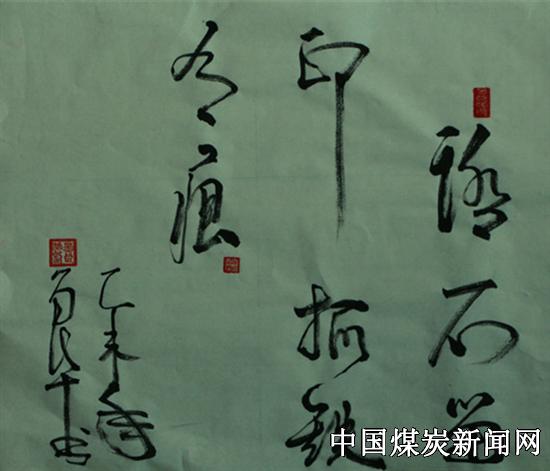 踏石留
印抓鐵
有痕
乙未年
书
中国煤炭新闻网